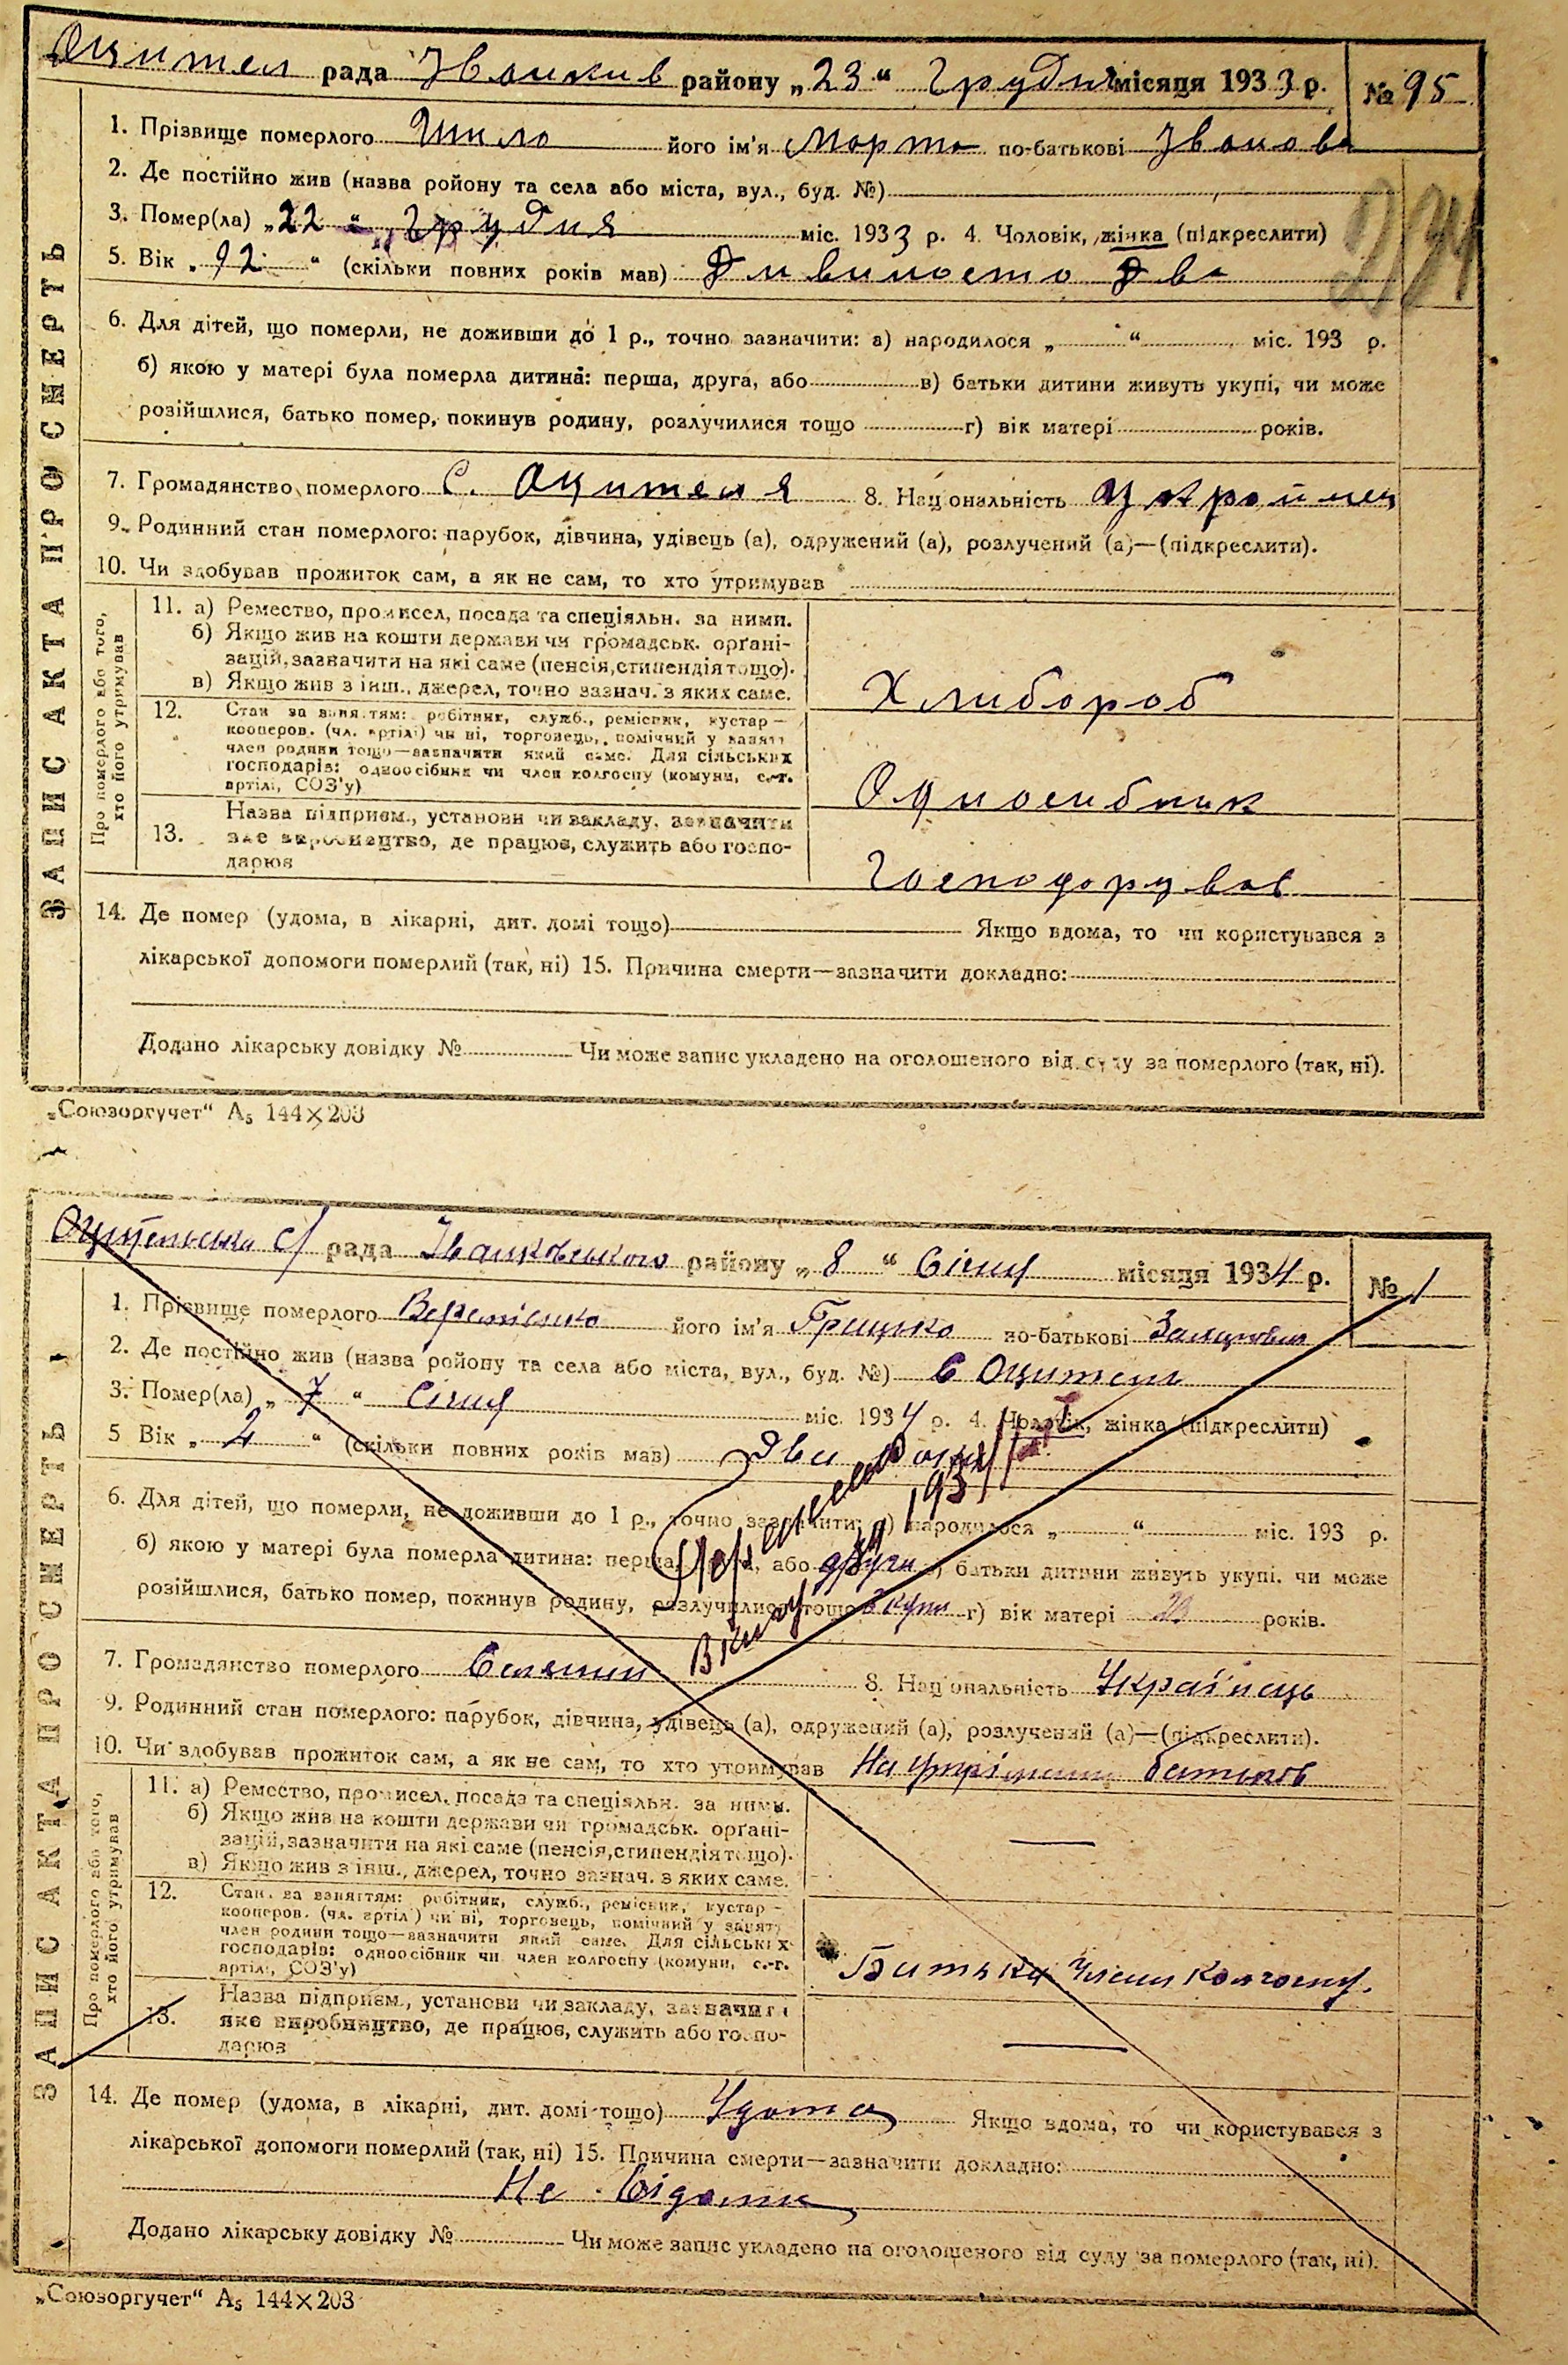 Оцител рада Іванків району „23“ Грудня місяця 1933 р. № 95
ЗАПИС АКТА ПРО СМЕРТЬ
1. Прізвище померлого Шило його ім'я Марта по-батькові Іванова
2. Де постійно жив (назва ройону та села або міста, вул., буд. №)
3. Помер(ла) „22“ Грудня міс. 1933 р. 4. Чоловік, жінка (підкреслити)
5. Вік „92“ (скільки повних років мав) Дивиносто два
6. Для дітей, що померли, не доживши до 1 р., точно зазначити: а) народилося „ “ міс. 193 р.
б) якою у матері була померла дитина: перша, друга, або в) батьки дитини живуть укупі, чи може
розійшлися, батько помер, покинув родину, розлучилися тощо г) вік матері років.
7. Громадянство померлого С. Оцителя 8. Національність Украйинец
9. Родинний стан померлого: парубок, дівчина, удівець (а), одружений (а), розлучений (а)—(підкреслити).
10. Чи здобував прожиток сам, а як не сам, то хто утримував
Про померлого або того, хто його утримував
11. а) Ремество, промисел, посада та спеціяльн. за ними.
б) Якщо жив на кошти держави чи громадськ. орґані-
зацій, зазначити на які саме (пенсія, стипендія тощо).
в) Якщо жив з інш., джерел, точно зазнач. з яких саме.
Хлибороб
12. Стан за заняттям: робітник, служб., ремісник, кустар—
кооперов. (чл. артілі) чи ні, торговець, помічний у занятт
член родини тощо—зазначити який саме. Для сільських
господарів: одноосібник чи член колгоспу (комуни, с.-г.
артілі, СОЗ'у)
Оцносибник
13. Назва підприєм., установи чи закладу, зазначити
яке виробництво, де працює, служить або госпо-
дарює
Госпоцорував
14. Де помер (удома, в лікарні, дит. домі тощо) Якщо вдома, то чи користувався з
лікарської допомоги померлий (так, ні) 15. Причина смерти—зазначити докладно:
Додано лікарську довідку № Чи може запис укладено на оголошеного від суду за померлого (так, ні).
„Союзоргучет“ А5 144×203
Оцительська с/ рада Іванковського району „8“ Січня місяця 1934 р. № 1
ЗАПИС АКТА ПРО СМЕРТЬ
1. Прізвище померлого його ім'я Грицько по-батькові
2. Де постійно жив (назва ройону та села або міста, вул., буд. №) с Оцитель
3. Помер(ла) „7“ Січня міс. 1934 р. 4. Чоловік, жінка (підкреслити)
5 Вік „2“ (скільки повних років мав) Два роки
6. Для дітей, що померли, не доживши до 1 р., точно зазначити: а) народилося „ “ міс. 193 р.
б) якою у матері була померла дитина: перша, друга, або друга в) батьки дитини живуть укупі, чи може
розійшлися, батько помер, покинув родину, розлучилися тощо вкупі г) вік матері років.
7. Громадянство померлого Селянин 8. Національність Українець
9. Родинний стан померлого: парубок, дівчина, удівець (а), одружений (а), розлучений (а)—(підкреслити).
10. Чи здобував прожиток сам, а як не сам, то хто утримував На утріманні батьків
Про померлого або того, хто його утримував
11. а) Ремество, промисел, посада та спеціяльн. за ними.
б) Якщо жив на кошти держави чи громадськ. орґані-
зацій, зазначити на які саме (пенсія, стипендія тощо).
в) Якщо жив з інш., джерел, точно зазнач. з яких саме.
12. Стан за заняттям: робітник, служб., ремісник, кустар—
кооперов. (чл. артілі) чи ні, торговець, помічний у занятт
член родини тощо—зазначити який саме. Для сільських
господарів: одноосібник чи член колгоспу (комуни, с.-г.
артілі, СОЗ'у)
Батьки члени колгоспу.
13. Назва підприєм., установи чи закладу, зазначити
яке виробництво, де працює, служить або госпо-
дарює
14. Де помер (удома, в лікарні, дит. домі тощо) Удома Якщо вдома, то чи користувався з
лікарської допомоги померлий (так, ні) 15. Причина смерти—зазначити докладно:
Не відома
Додано лікарську довідку № Чи може запис укладено на оголошеного від суду за померлого (так, ні).
„Союзоргучет“ А5 144×203